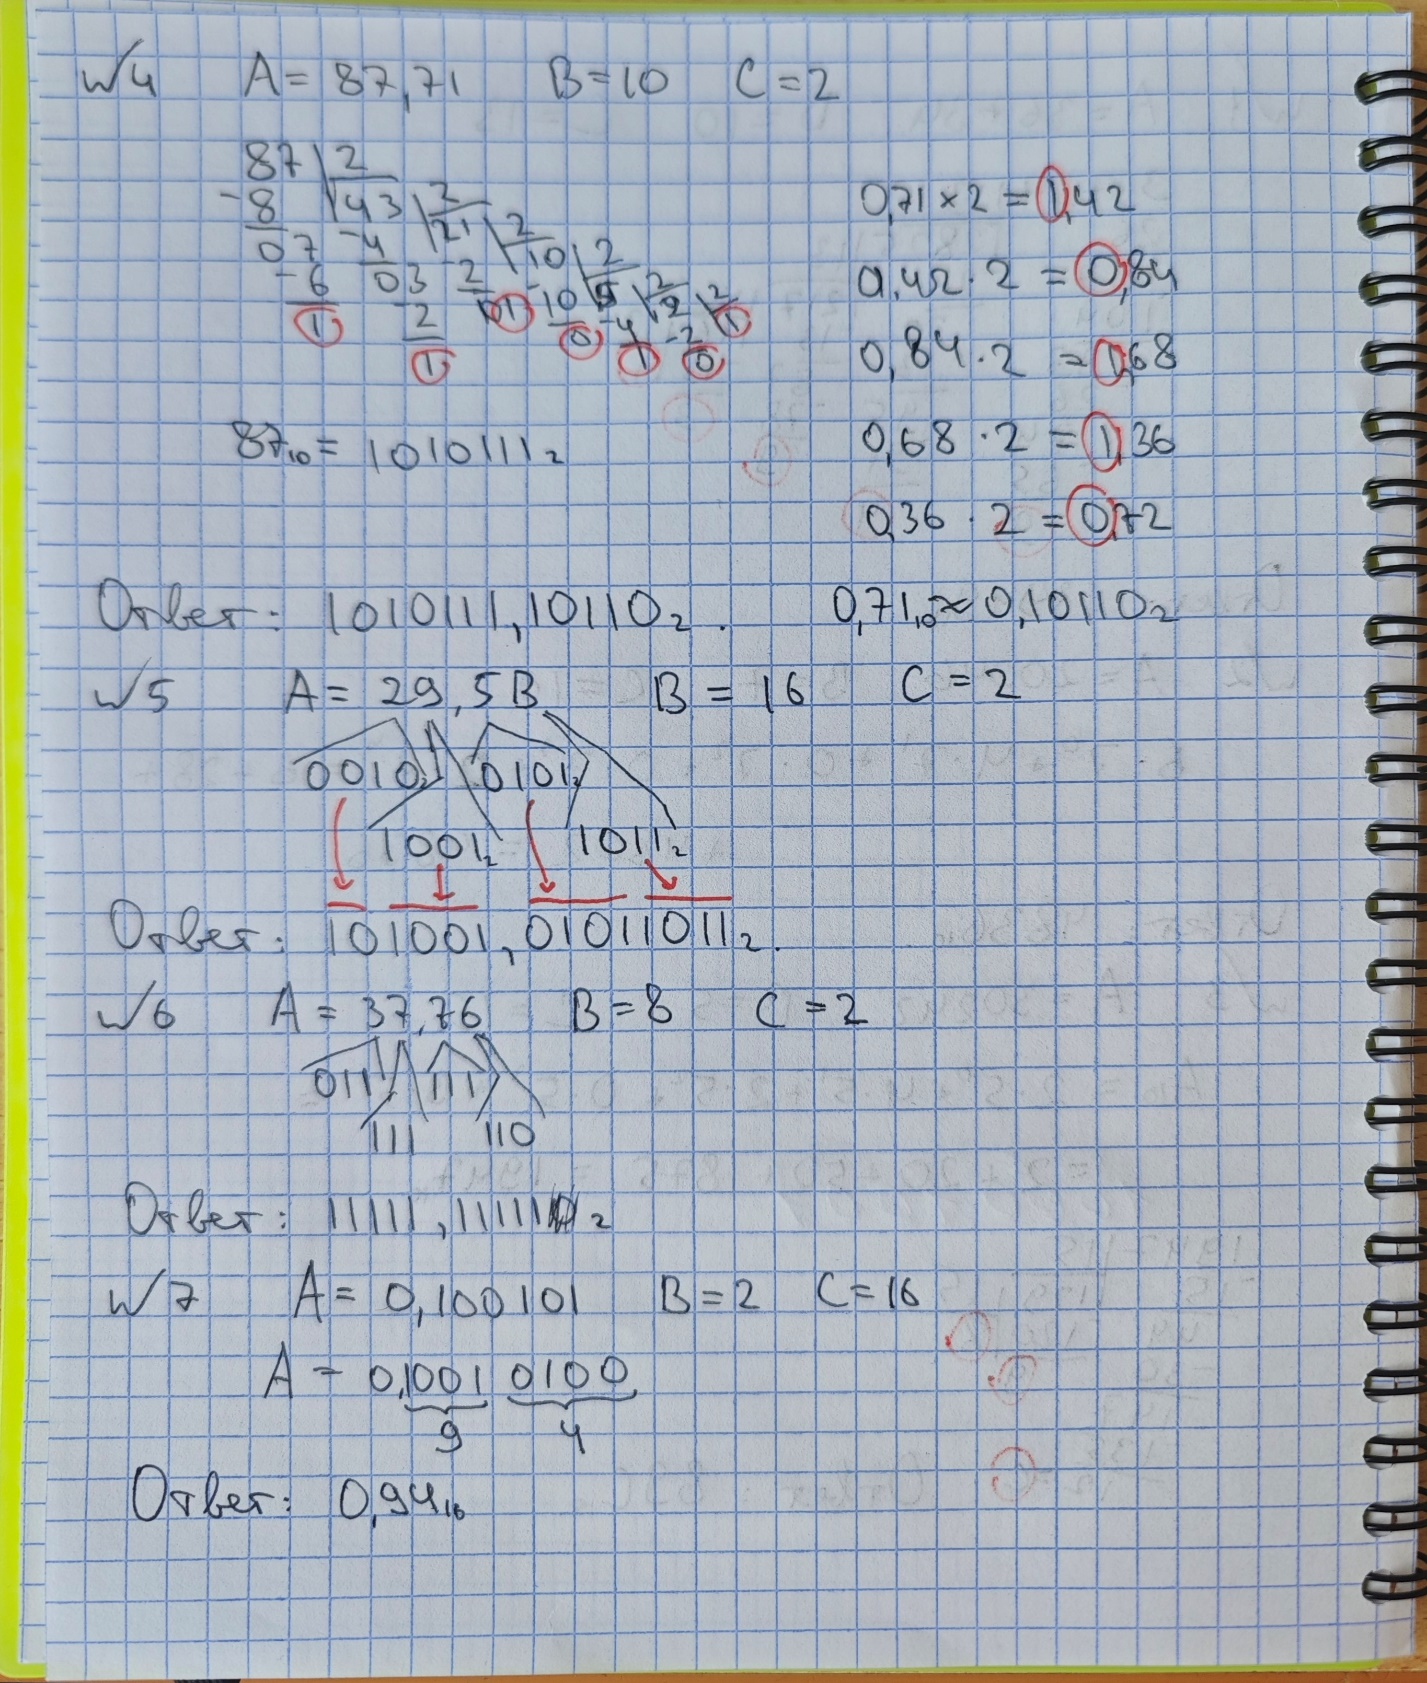 №4 A = 87,71 B=10 C=2
87 2
-8 43 2
07 -4 21 2
-6 03 -2 10 2
1 -2 01 -10 5 2
1 0 -4 2 2
1 -2 1
0
0,71 × 2 = 1,42
0,42 · 2 = 0,84
0,84 · 2 = 1,68
0,68 · 2 = 1,36
0,36 · 2 = 0,72
87₁₀ = 1010111₂
Ответ: 1010111,10110₂. 0,71₁₀ ≈ 0,10110₂
№5 A = 29,5B B = 16 C = 2
0010₂ 0101₂
1001₂ 1011₂
Ответ: 101001,01011011₂.
№6 A = 37,76 B=8 C=2
011 111
111 110
Ответ: 11111,11111₂
№7 A = 0,100101 B=2 C=16
A = 0,1001 0100
9 4
Ответ: 0,94₁₆